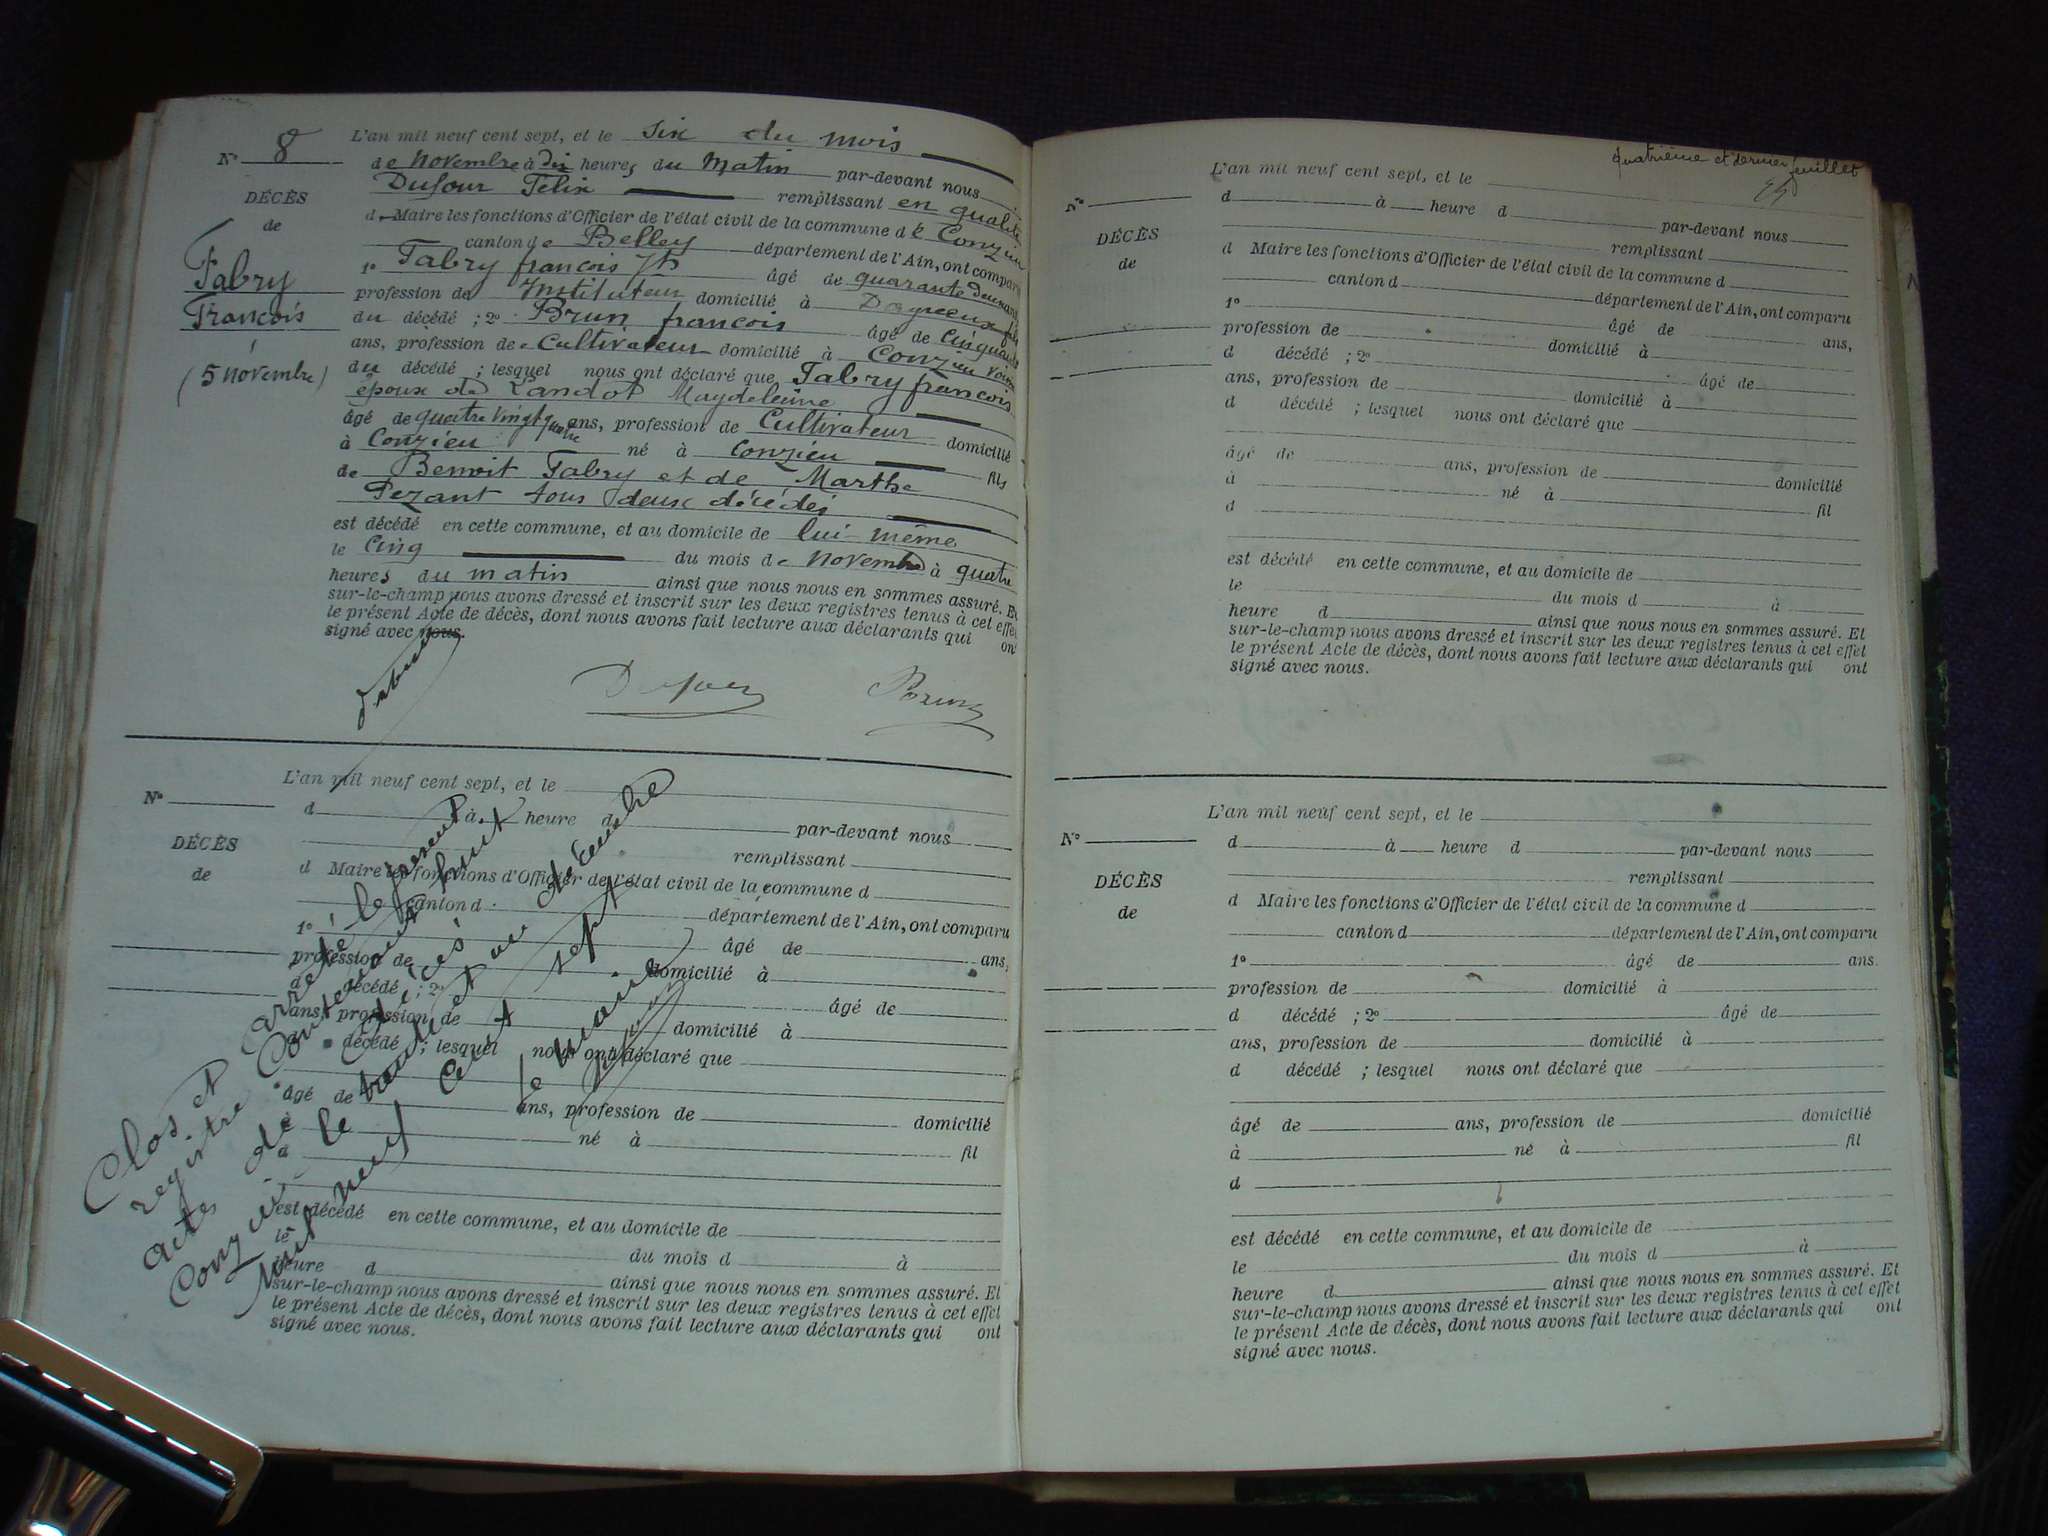 N° 8
DÉCÈS
de
Fabry
François
(5 novembre)
L'an mil neuf cent sept, et le six du mois
de novembre à dix heures du matin par-devant nous
Dufour Félix remplissant en qualité
d Maire les fonctions d'Officier de l'état civil de la commune de Conzieu
canton de Belley département de l'Ain, ont comparu
1° Fabry françois Jh âgé de quarante deux ans
profession de Instituteur domicilié à fils
du décédé ; 2° Brun francois âgé de cinquante
ans, profession de Cultivateur domicilié à Conzieu voisin
du décédé ; lesquel nous ont déclaré que Fabry francois
époux de Landot Magdeleine
âgé de quatre vingt quatre ans, profession de Cultivateur domicilié
à Conzieu né à Conzieu fils
de Benoit Fabry et de Marthe
Pezant tous deux décédés
est décédé en cette commune, et au domicile de lui même
le cinq du mois de novembre à quatre
heures du matin ainsi que nous nous en sommes assuré. Et
sur-le-champ nous avons dressé et inscrit sur les deux registres tenus à cet effet
le présent Acte de décès, dont nous avons fait lecture aux déclarants qui ont
signé avec nous.
Dufour Brun
N°
DÉCÈS
de
L'an mil neuf cent sept, et le
d à heure d par-devant nous
remplissant
d Maire les fonctions d'Officier de l'état civil de la commune d
canton d département de l'Ain, ont comparu
1° âgé de ans,
profession de domicilié à
d décédé ; 2° âgé de
ans, profession de domicilié à
d décédé ; lesquel nous ont déclaré que
âgé de ans, profession de domicilié
à né à fil
d
est décédé en cette commune, et au domicile de
le du mois d à
heure d ainsi que nous nous en sommes assuré. Et
sur-le-champ nous avons dressé et inscrit sur les deux registres tenus à cet effet
le présent Acte de décès, dont nous avons fait lecture aux déclarants qui ont
signé avec nous.
Clos et arrêté le présent
registre contenant huit
actes de décès
Conzieu le trente et un décembre
mil neuf cent sept
le maire
quatrième et dernier feuillet
N°
DÉCÈS
de
L'an mil neuf cent sept, et le
d à heure d par-devant nous
remplissant
d Maire les fonctions d'Officier de l'état civil de la commune d
canton d département de l'Ain, ont comparu
1° âgé de ans,
profession de domicilié à
d décédé ; 2° âgé de
ans, profession de domicilié à
d décédé ; lesquel nous ont déclaré que
âgé de ans, profession de domicilié
à né à fil
d
est décédé en cette commune, et au domicile de
le du mois d à
heure d ainsi que nous nous en sommes assuré. Et
sur-le-champ nous avons dressé et inscrit sur les deux registres tenus à cet effet
le présent Acte de décès, dont nous avons fait lecture aux déclarants qui ont
signé avec nous.
N°
DÉCÈS
de
L'an mil neuf cent sept, et le
d à heure d par-devant nous
remplissant
d Maire les fonctions d'Officier de l'état civil de la commune d
canton d département de l'Ain, ont comparu
1° âgé de ans.
profession de domicilié à
d décédé ; 2° âgé de
ans, profession de domicilié à
d décédé ; lesquel nous ont déclaré que
âgé de ans, profession de domicilié
à né à fil
d
est décédé en cette commune, et au domicile de
le du mois d à
heure d ainsi que nous nous en sommes assuré. Et
sur-le-champ nous avons dressé et inscrit sur les deux registres tenus à cet effet
le présent Acte de décès, dont nous avons fait lecture aux déclarants qui ont
signé avec nous.